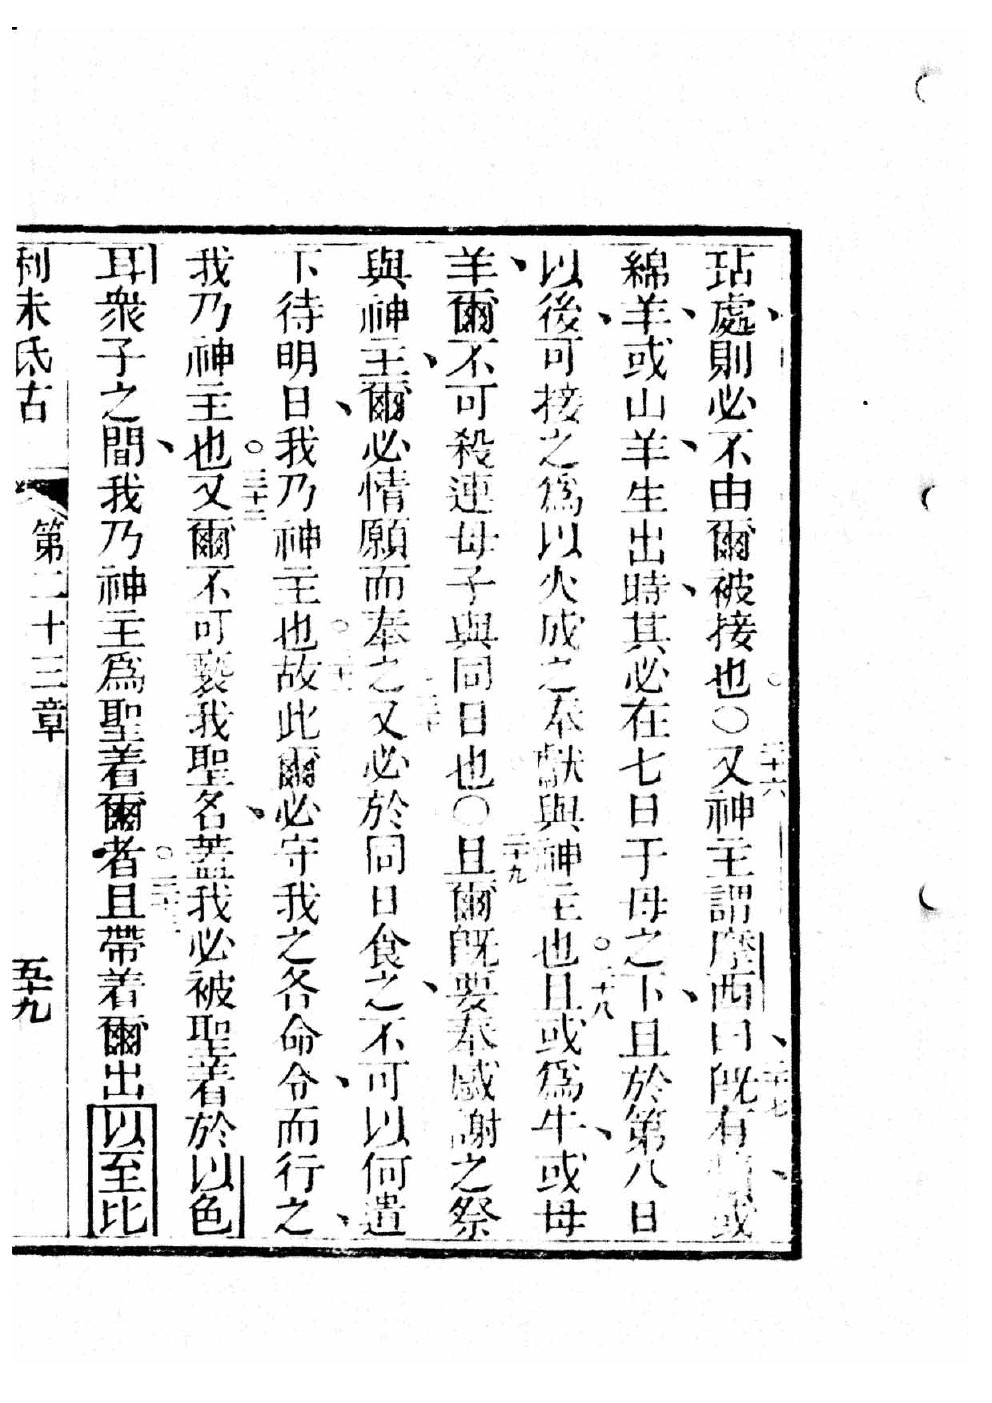 玷處則必不由爾被接也〇二十六又神主謂摩西曰二十七既有犢或
綿羊或山羊生出時其必在七日于母之下且於第八日
以後可接之爲以火成之奉獻與神主也二十八且或爲牛或母
羊爾不可殺連母子與同日也〇二十九且爾既要奉感謝之祭
與神主爾必情願而奉之三十又必於同日食之不可以何遺
下待明日我乃神主也故此爾必守我之各命令而行之
我乃神主也三十二又爾不可褻我聖名蓋我必被聖着於以色
耳衆子之間我乃神主爲聖着爾者且帶着爾出以至比
利未氏古
第二十三章
五十九